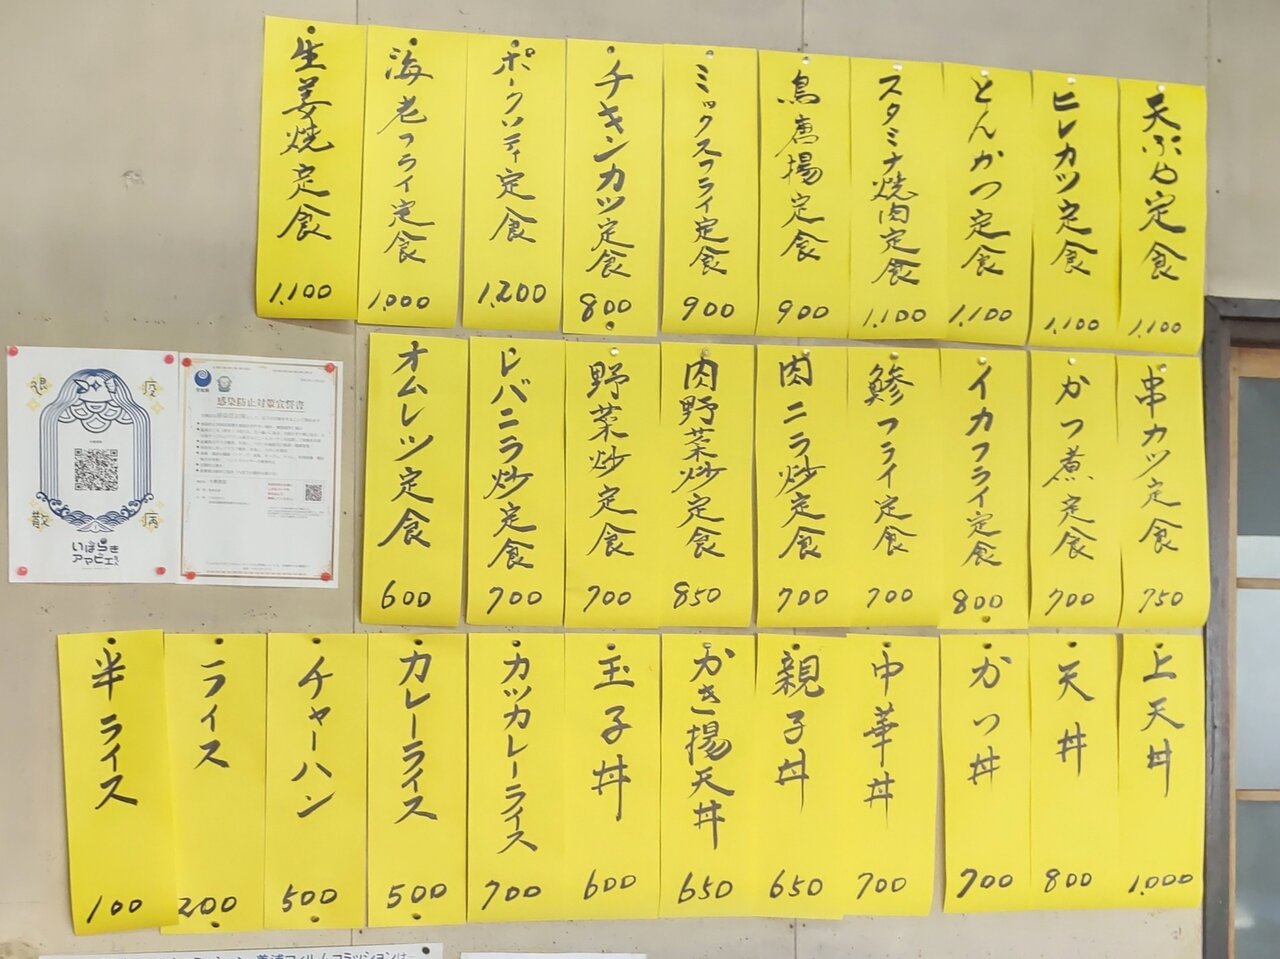 天ぷら定食 1,100
ヒレカツ定食 1,100
とんかつ定食 1,100
スタミナ焼肉定食 1,100
鳥唐揚定食 900
ミックスフライ定食 900
チキンカツ定食 800
ポークソティ定食 1,200
海老フライ定食 1,000
生姜焼定食 1,100
串カツ定食 750
かつ煮定食 700
イカフライ定食 800
鯵フライ定食 700
肉ニラ炒定食 700
肉野菜炒定食 850
野菜炒定食 700
レバニラ炒定食 700
オムレツ定食 600
上天丼 1,000
天丼 800
かつ丼 700
中華丼 700
親子丼 650
かき揚天丼 650
玉子丼 600
カツカレーライス 700
カレーライス 500
チャーハン 500
ライス 200
半ライス 100
退 疫
散 病
いばらき
アマビエちゃん
感染防止対策宣誓書